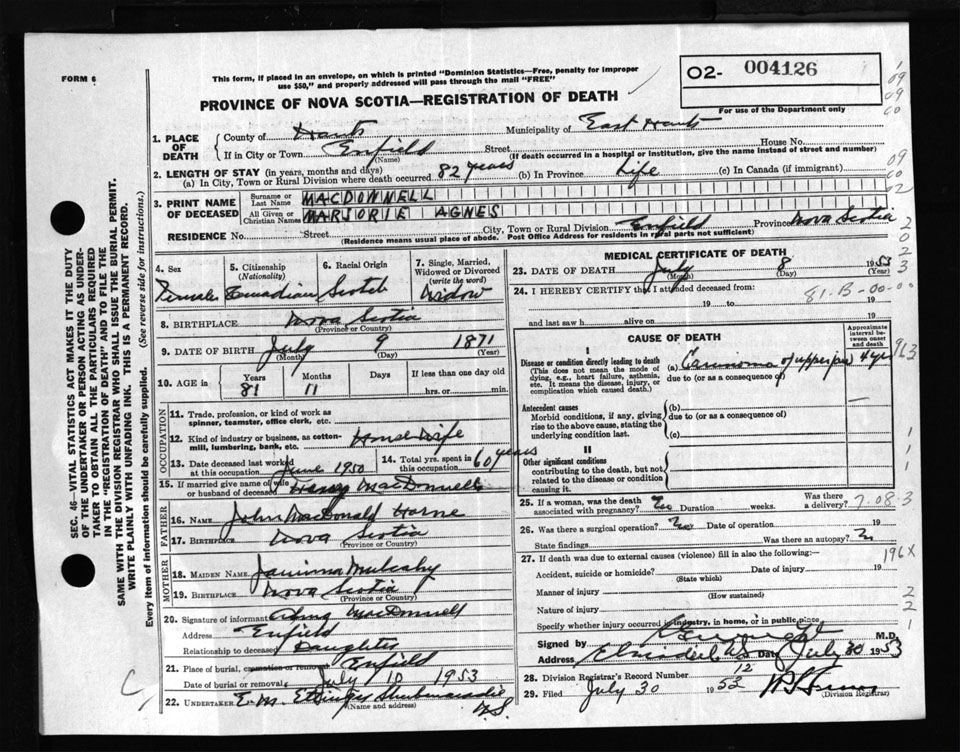 FORM 6
This form, if placed in an envelope, on which is printed "Dominion Statistics—Free, penalty for improper
use $50," and properly addressed will pass through the mail "FREE"
O2- 004126
For use of the Department only
PROVINCE OF NOVA SCOTIA—REGISTRATION OF DEATH
1. PLACE OF DEATH
County of Hants Municipality of East Hants
If in City or Town Enfield Street House No.
(Name) (If death occurred in a hospital or institution, give the name instead of street and number)
2. LENGTH OF STAY (in years, months and days)
(a) In City, Town or Rural Division where death occurred 82 years (b) In Province Life (c) In Canada (if immigrant)
3. PRINT NAME OF DECEASED
Surname or Last Name MACDONNELL
All Given or Christian Names MARJORIE AGNES
RESIDENCE No. Street City, Town or Rural Division Enfield Province Nova Scotia
(Residence means usual place of abode. Post Office Address for residents in rural parts not sufficient)
4. Sex Female
5. Citizenship (Nationality) Canadian
6. Racial Origin Scotch
7. Single, Married, Widowed or Divorced (write the word) Widow
8. BIRTHPLACE Nova Scotia
(Province or Country)
9. DATE OF BIRTH July 9 1871
(Month) (Day) (Year)
10. AGE in Years 81 Months 11 Days If less than one day old hrs. or min.
OCCUPATION
11. Trade, profession, or kind of work as spinner, teamster, office clerk, etc.
12. Kind of industry or business, as cotton-mill, lumbering, bank, etc. House Wife
13. Date deceased last worked at this occupation June 1950
14. Total yrs. spent in this occupation 60 years
15. If married give name of wife or husband of deceased Harry MacDonnell
FATHER
16. NAME John MacDonald Horne
17. BIRTHPLACE Nova Scotia
(Province or Country)
MOTHER
18. MAIDEN NAME Mulcahy
19. BIRTHPLACE Nova Scotia
(Province or Country)
20. Signature of informant MacDonnell
Address Enfield
Relationship to deceased Daughter
21. Place of burial, cremation or removal Enfield
Date of burial or removal July 10 1953
22. UNDERTAKER E. M. Ettinger Shubenacadie
(Name and address) N.S.
MEDICAL CERTIFICATE OF DEATH
23. DATE OF DEATH July 8 1953
(Month) (Day) (Year)
24. I HEREBY CERTIFY that I attended deceased from:
19 to 19
and last saw h alive on 19
81-B-00-00
CAUSE OF DEATH
Approximate interval between onset and death
I
Disease or condition directly leading to death
(This does not mean the mode of dying, e.g., heart failure, asthenia, etc. It means the disease, injury, or complication which caused death.)
(a) Carcinoma of upper jaw 4 yrs
due to (or as a consequence of)
Antecedent causes
Morbid conditions, if any, giving rise to the above cause, stating the underlying condition last.
(b)
due to (or as a consequence of)
(c)
II
Other significant conditions
contributing to the death, but not related to the disease or condition causing it.
25. If a woman, was the death associated with pregnancy? No Duration weeks. Was there a delivery?
7-08-3
26. Was there a surgical operation? No Date of operation 19
State findings Was there an autopsy? No
27. If death was due to external causes (violence) fill in also the following:—
196X
Accident, suicide or homicide? Date of injury 19
(State which)
Manner of injury
(How sustained)
Nature of injury
Specify whether injury occurred in industry, in home, or in public place
Signed by M.D.
Address Date July 30 1953
28. Division Registrar's Record Number 12
29. Filed July 30 1953
(Division Registrar)
SEC. 46—VITAL STATISTICS ACT MAKES IT THE DUTY
OF THE UNDERTAKER OR PERSON ACTING AS UNDER-
TAKER TO OBTAIN ALL THE PARTICULARS REQUIRED
IN THE "REGISTRATION OF DEATH" AND TO FILE THE
SAME WITH THE DIVISION REGISTRAR WHO SHALL ISSUE THE BURIAL PERMIT.
WRITE PLAINLY WITH UNFADING INK. THIS IS A PERMANENT RECORD.
Every item of information should be carefully supplied. (See reverse side for instructions.)